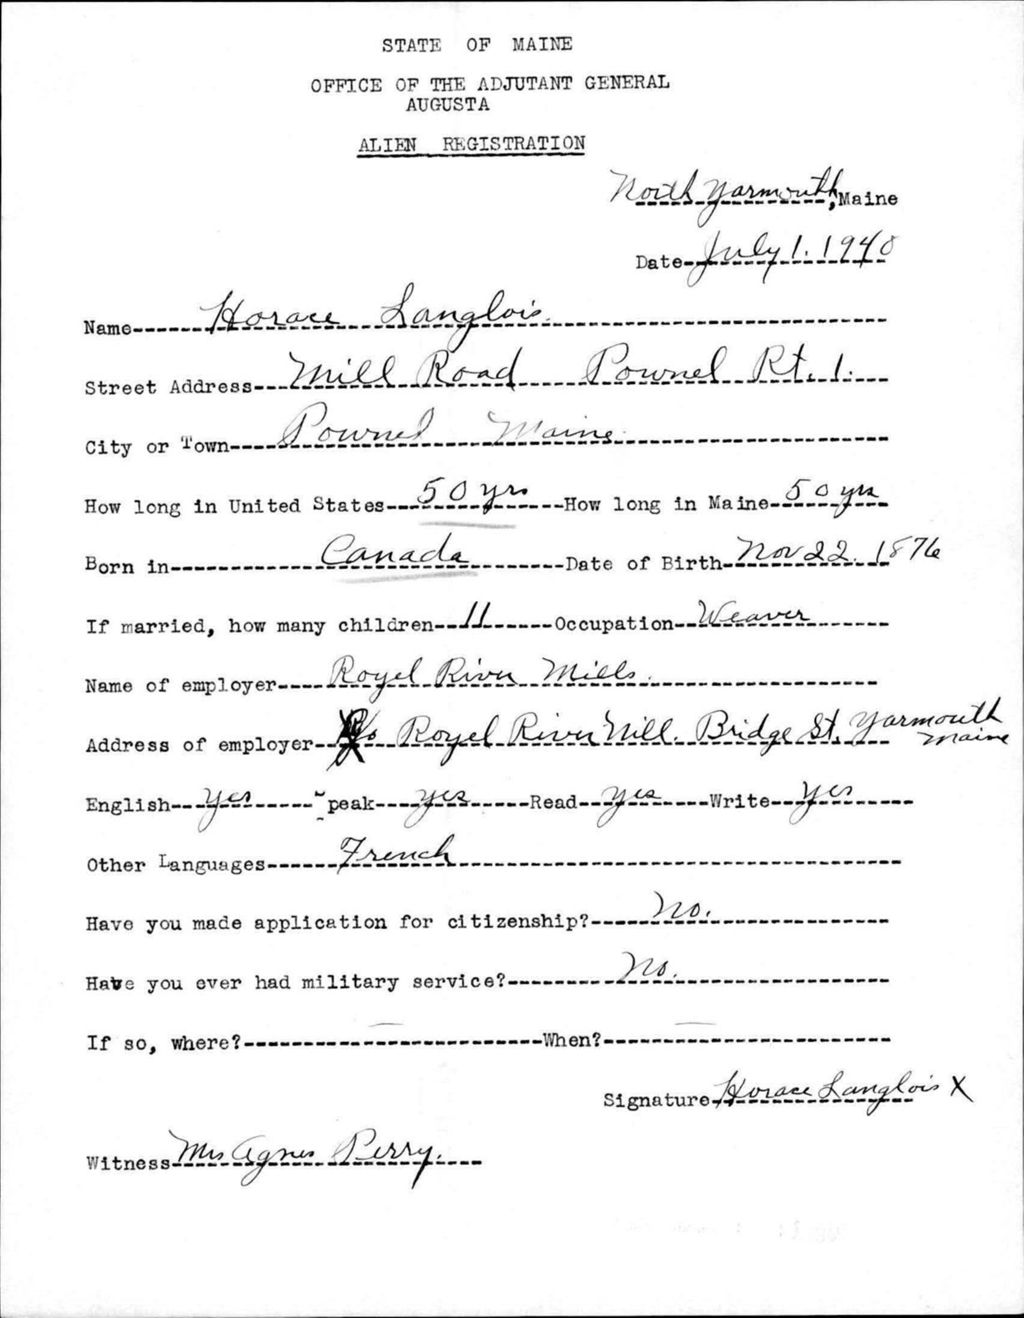 STATE OF MAINE
OFFICE OF THE ADJUTANT GENERAL
AUGUSTA
ALIEN REGISTRATION
North Yarmouth, Maine
Date July 1. 1940
Name Horace Langlois.
Street Address Mill Road Pownel Rt. 1.
City or Town Pownel Maine.
How long in United States 50 yrs How long in Maine 50 yrs
Born in Canada Date of Birth Nov 22. 1876
If married, how many children 11 Occupation Weaver
Name of employer Royel River Mills.
Address of employer Royel River Mill. Bridge St. Yarmouth Maine
English yes Speak yes Read yes Write yes
Other Languages French
Have you made application for citizenship? No.
Have you ever had military service? No.
If so, where? — When? —
Signature Horace Langlois X
Witness Mrs Agnes Perry.